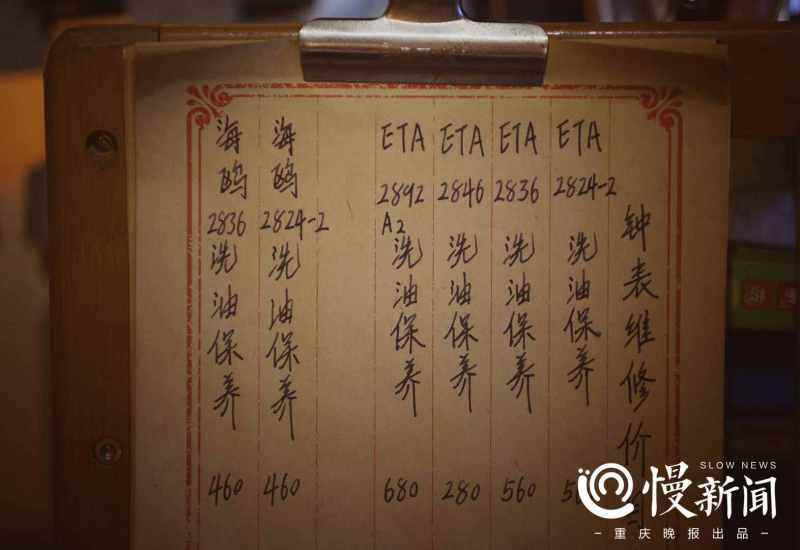 钟表维修价
ETA 2824-2 洗油保养
ETA 2836 洗油保养 560
ETA 2846 洗油保养 280
ETA 2892 A2 洗油保养 680
海鸥 2824-2 洗油保养 460
海鸥 2836 洗油保养 460
SLOW NEWS
慢新闻
重庆晚报出品